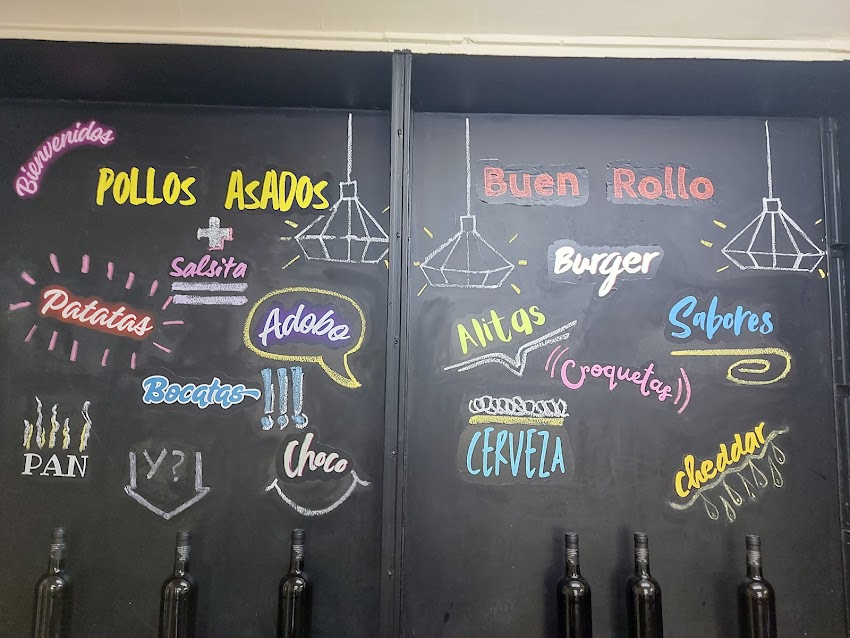 Bienvenidos
POLLOS ASADOS
+
Salsita
Patatas
Adobo
Bocatas!!!
PAN
Y?
Choco
Buen Rollo
Burger
Alitas
Sabores
Croquetas
CERVEZA
cheddar